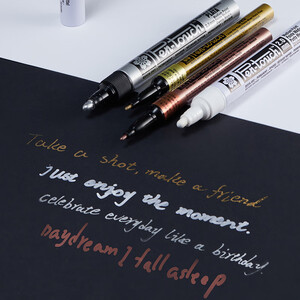 Pen-touch
Take a shot, make a friend
Just enjoy the moment.
celebrate everyday like a birthday.
Daydream I fall asleep